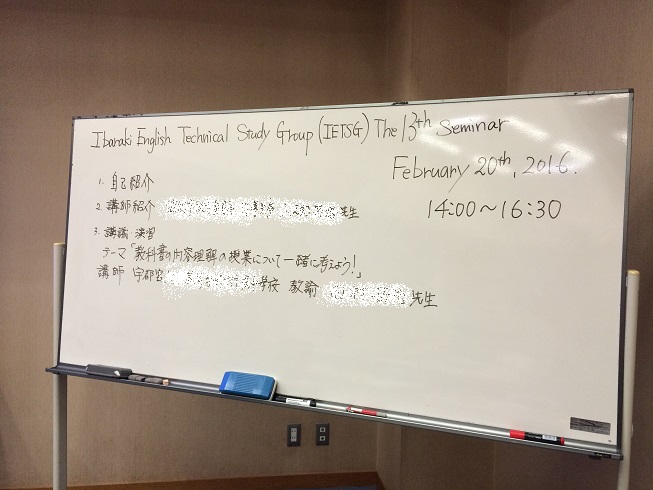 Ibaraki English Technical Study Group (IETSG) The 13th Seminar
February 20th, 2016.
14:00～16:30
1. 自己紹介
2. 講師紹介 先生
3. 講議・演習
テーマ「教科書の内容理解の授業について一緒に考えよう!」
講師 宇都宮 学校 教諭 先生